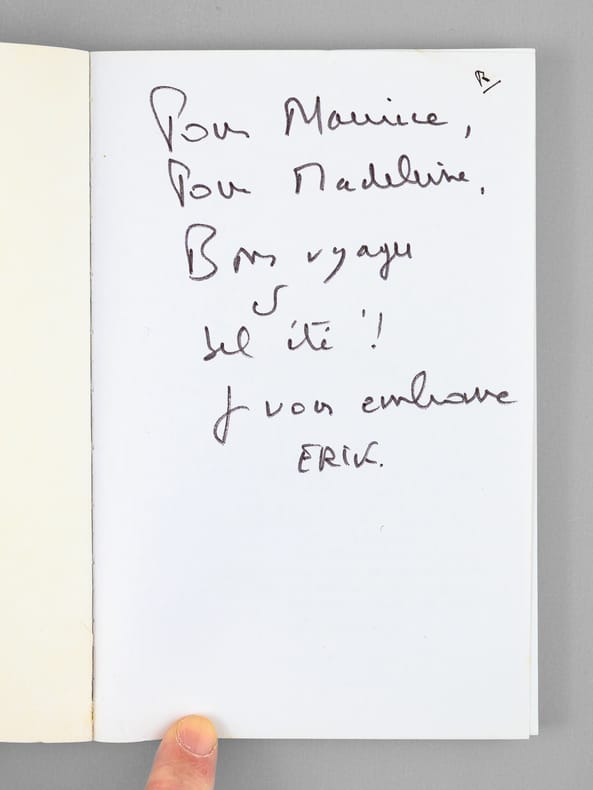 Pour Maurice,
Pour Madeleine,
Bon voyage
bel été !
Je vous embrasse
ERIK.